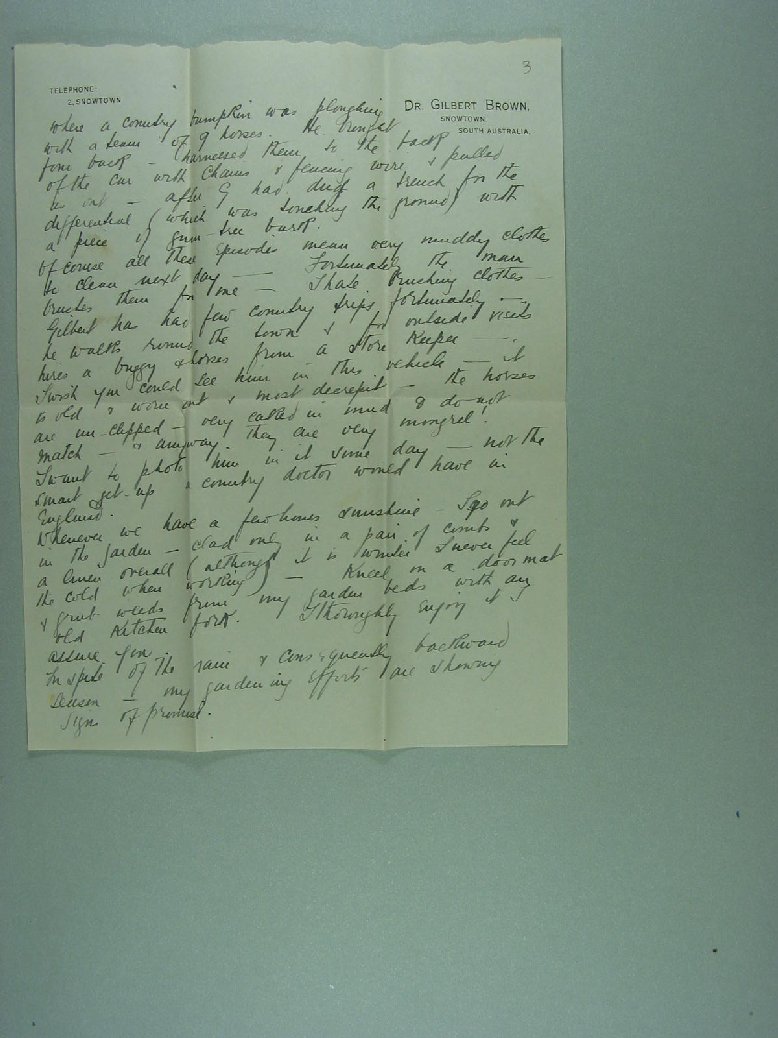 3
TELEPHONE:
2, SNOWTOWN
DR. GILBERT BROWN,
SNOWTOWN,
SOUTH AUSTRALIA.
where a country bumpkin was ploughing
with a team of 9 horses. He brought
four back — harnessed them to the back
of the car with chains & fencing wire & pulled
us out — after G had dug a trench for the
differential (which was touching the ground) with
a piece of gum-tree bark.
Of course all these episodes mean very muddy clothes
to clean next day — Fortunately the man
brushes them for me — I hate brushing clothes —
Gilbert has had few country trips fortunately —
he walks round the town & for outside visits
hires a buggy & horses from a store keeper —.
I wish you could see him in this vehicle — it
is old & worn out & most decrepit — the horses
are un-clipped — very caked in mud & do not
match — & anyway they are very mongrel!
I want to photo him in it some day — not the
smart get-up a country doctor would have in
England.
Whenever we have a few hours sunshine — I go out
in the garden — clad only in a pair of combs &
a linen overall (although it is winter I never feel
the cold when working) — Kneel on a door mat
& grub weeds from my garden beds with an
old kitchen fork. I thoroughly enjoy it I
assure you.
In spite of the rain & consequently backward
season — my gardening efforts are showing
signs of promise.